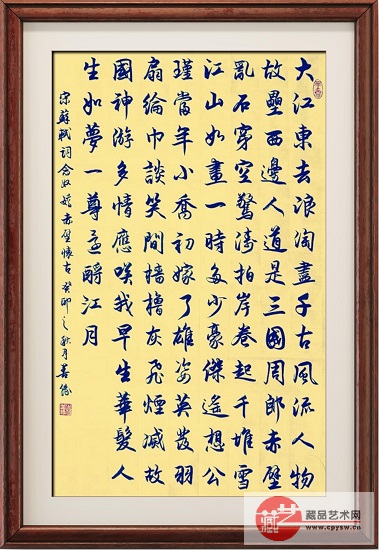 大江東去浪淘盡千古風流人物
故壘西邊人道是三國周郎赤壁
亂石穿空驚濤拍岸卷起千堆雪
江山如畫一時多少豪傑遙想公
瑾當年小喬初嫁了雄姿英發羽
扇綸巾談笑間檣櫓灰飛煙滅故
國神游多情應咲我早生華髮人
生如夢一尊還酹江月
宋蘇軾詞念奴嬌赤壁懷古癸卯之秋月
藏艺
藏品艺术网
www.cpysw.cn